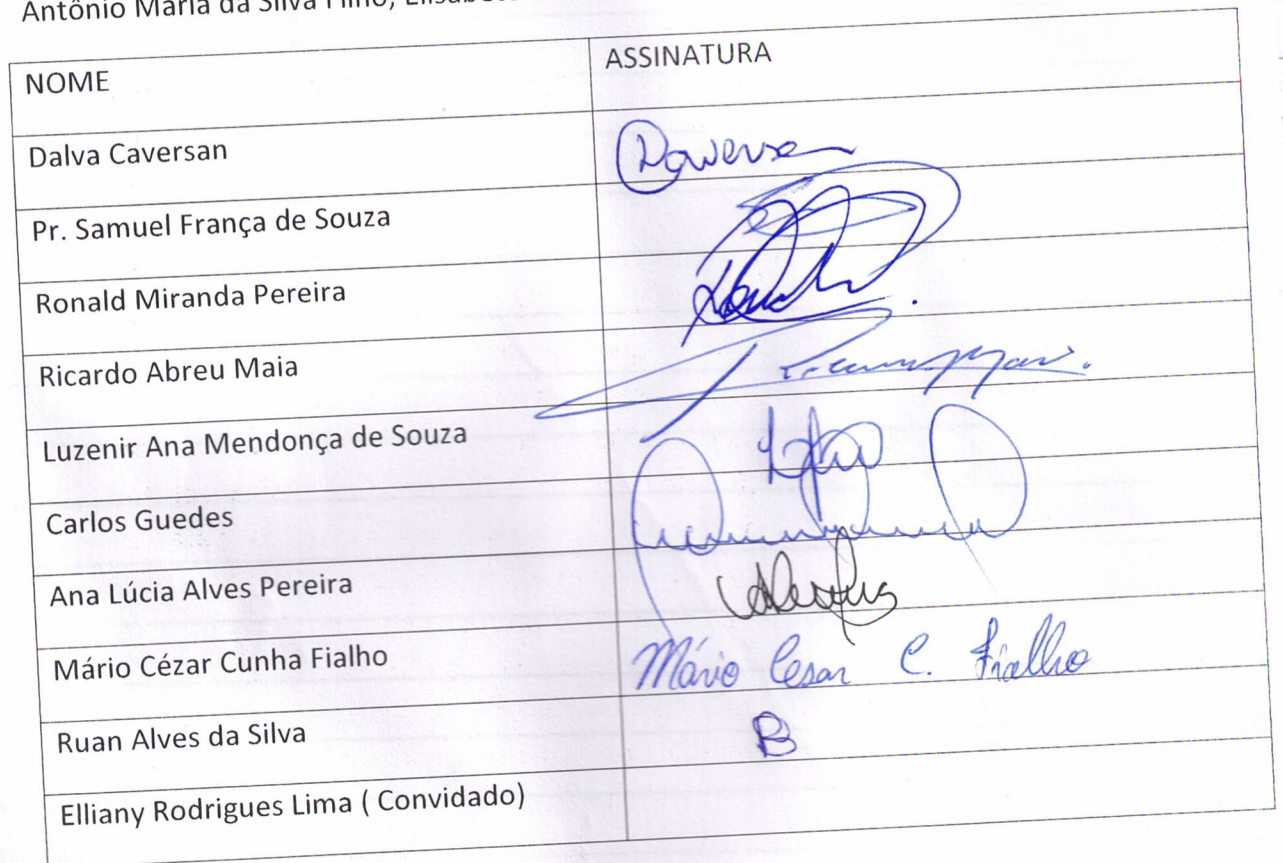 Antônio Maria da Silva Filho,
NOME ASSINATURA
Dalva Caversan
Pr. Samuel França de Souza
Ronald Miranda Pereira
Ricardo Abreu Maia
Luzenir Ana Mendonça de Souza
Carlos Guedes
Ana Lúcia Alves Pereira
Mário Cézar Cunha Fialho Mário Cesar C. Fialho
Ruan Alves da Silva
Elliany Rodrigues Lima ( Convidado)